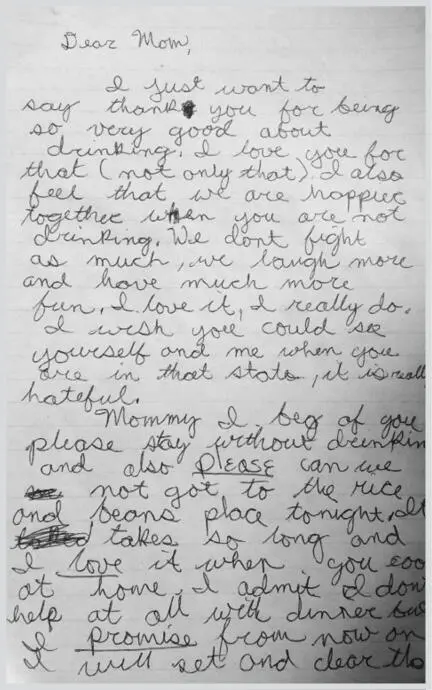 Dear Mom,
I just want to
say thank you for being
so very good about
drinking. I love you for
that (not only that). I also
feel that we are happier
together when you are not
drinking. We dont fight
as much, we laugh more
and have much more
fun. I love it, I really do.
I wish you could see
yourself and me when you
are in that state, it is reall
hateful.
Mommy I beg of you
please stay without drinkin
and also PLEASE can we
not got to the rice
and beans place tonight. It
takes so long and
I love it when you coo
at home. I admit I don
help at all with dinner but
I promise from now on
I will set and clear the